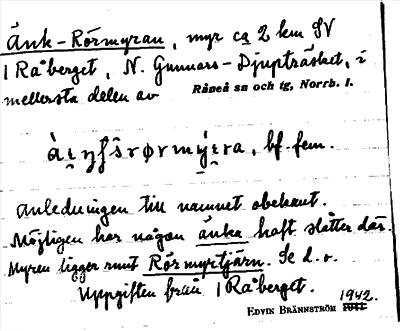 Änk-Rörmyran, myr ca 2 km SV
1 Råberget, N. Gunnars-Djupträsket, i
mellersta delen av Råneå sn och tg, Norrb. l.
bf. fem.
Anledningen till namnet obekant.
Möjligen har någon änka haft slåtter där.
Myren ligger runt Rörmyrtjärn. Se d. o.
Uppgiften från 1 Råberget.
EDVIN BRÄNNSTRÖM 1942.